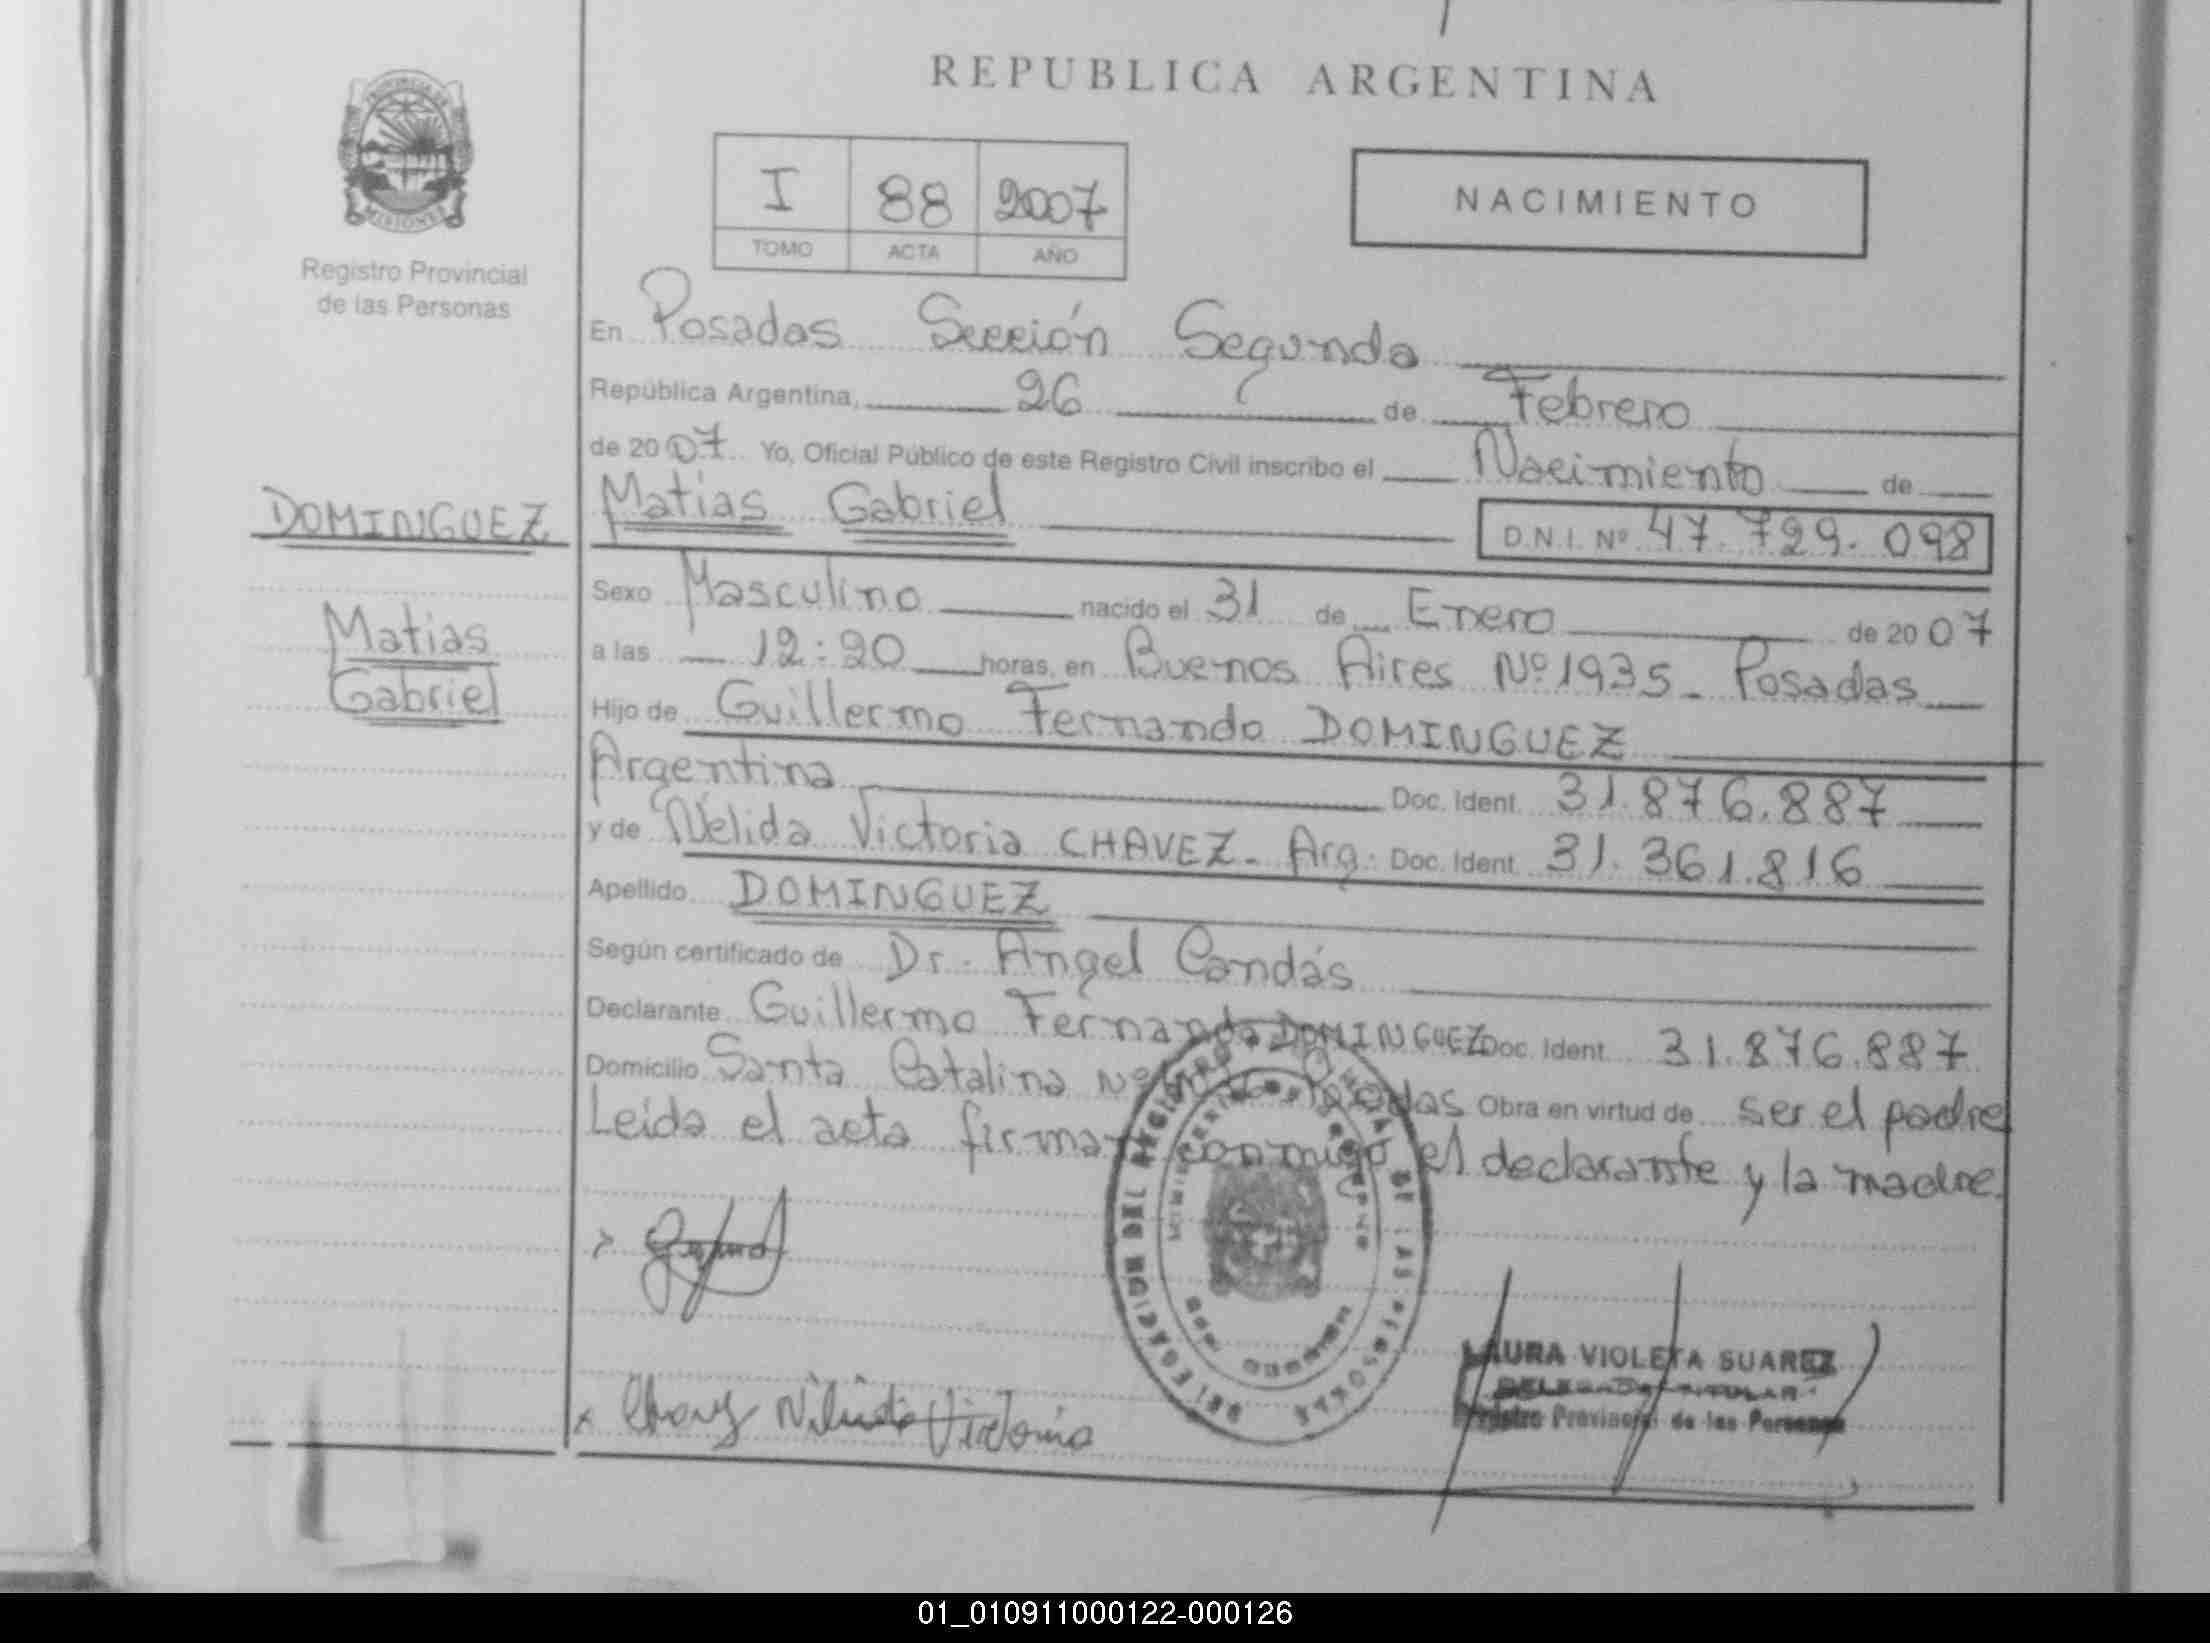 REPUBLICA ARGENTINA
PROVINCIA DE
MISIONES
Registro Provincial
de las Personas
I 88 2007
TOMO ACTA AÑO
NACIMIENTO
En Posadas Sección Segunda
República Argentina, 26 de Febrero
de 2007 Yo, Oficial Público de este Registro Civil inscribo el Nacimiento de
DOMINGUEZ
Matias
Gabriel
Matias Gabriel D.N.I. Nº 47.729.098
Sexo Masculino nacido el 31 de Enero de 2007
a las 12:20 horas, en Buenos Aires Nº 1935- Posadas
Hijo de Guillermo Fernando DOMINGUEZ
Argentina Doc. Ident. 31.876.887
y de Nélida Victoria CHAVEZ- Arg. Doc. Ident. 31.361.816
Apellido DOMINGUEZ
Según certificado de Dr. Angel Candás
Declarante Guillermo Fernando DOMINGUEZ Doc. Ident. 31.876.887
Domicilio Santa Catalina Nº Posadas Obra en virtud de ser el padre
Leida el acta firman conmigo el declarante y la madre.
Chavez Nélida Victoria
LAURA VIOLETA SUAREZ
DELEGADA TITULAR
Registro Provincial de las Personas
01_010911000122-000126